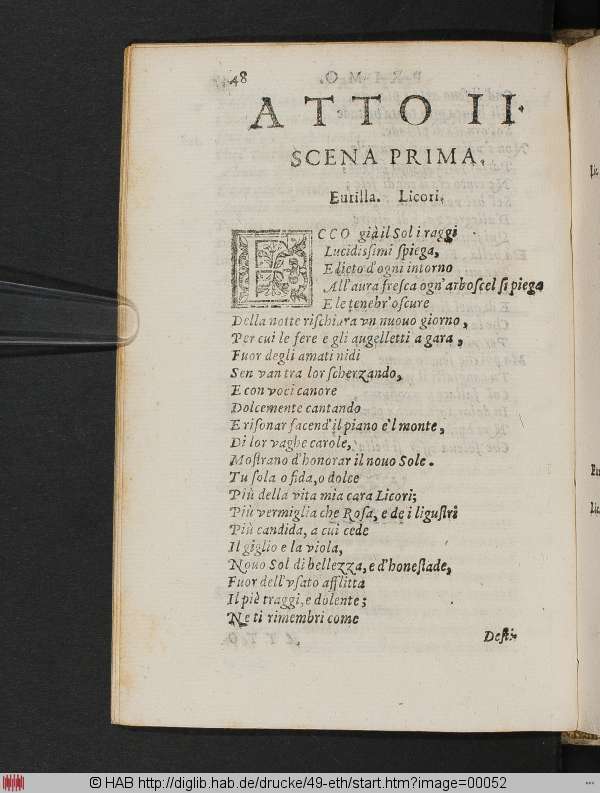 48
ATTO II.
SCENA PRIMA.
Eurilla. Licori.
ECCO già il Sol i raggi
Lucidissimi spiega,
E dieto d'ogni intorno
All'aura fresca ogn'arboscel si piega
E le tenebr'oscure
Della notte rischiara vn nuouo giorno,
Per cui le fere e gli augelletti a gara,
Fuor degli amati nidi
Sen van tra lor scherzando,
E con voci canore
Dolcemente cantando
E risonar facend'il piano e'l monte,
Di lor vaghe carole,
Mostrano d'honorar il nouo Sole.
Tu sola o fida, o dolce
Più della vita mia cara Licori;
Più vermiglia che Rosa, e de i ligustri
Più candida, a cui cede
Il giglio e la viola,
Nouo Sol di bellezza, e d'honestade,
Fuor dell'vsato afflitta
Il piè traggi, e dolente;
Ne ti rimembri come
Desti-
Lic
Lic.
© HAB http://diglib.hab.de/drucke/49-eth/start.htm?image=00052